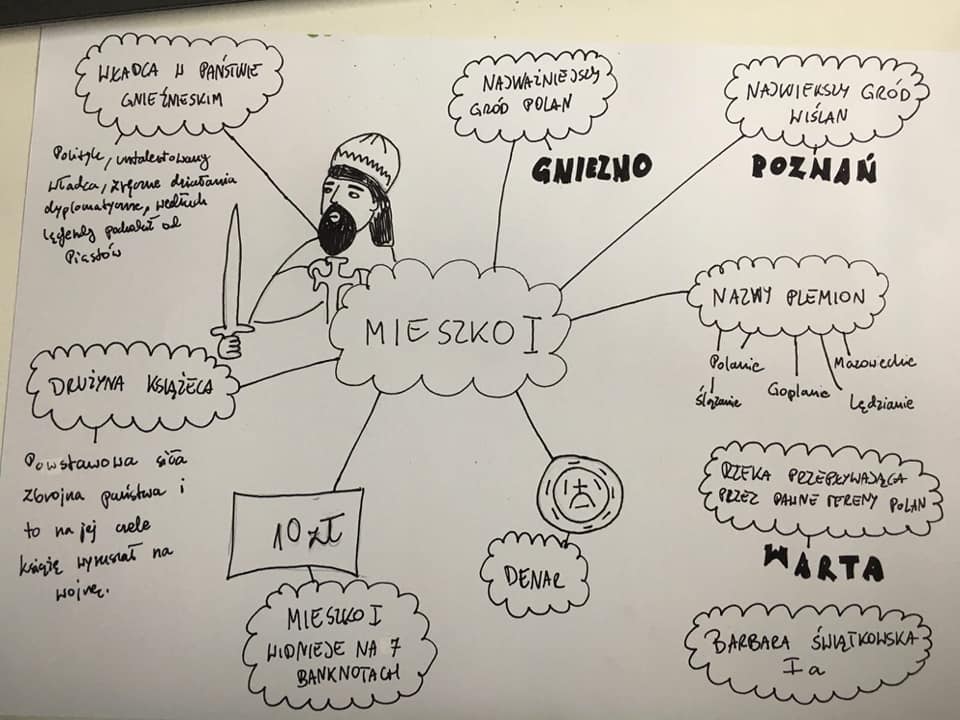 WŁADCA W PAŃSTWIE
GNIEŹNIESKIM
Polityk, utalentowany
władca, zręczne działania
dyplomatyczne, według
legendy pochodził od
Piastów
NAJWAŻNIEJSZY
GRÓD POLAN
GNIEZNO
NAJWIĘKSZY GRÓD
WIŚLAN
POZNAŃ
MIESZKO I
NAZWY PLEMION
Polanie
Mazowszanie
Goplanie
Ślężanie
Lędzianie
DRUŻYNA KSIĄŻĘCA
Powstawowa siła
zbrojna państwa i
to na jej czele
książę wyruszał na
wojnę.
10 zł
MIESZKO I
WIDNIEJE NA 7
BANKNOTACH
DENAR
RZEKA PRZEPŁYWAJĄCA
PRZEZ DAWNE TERENY POLAN
WARTA
BARBARA ŚWIĄTKOWSKA
I a